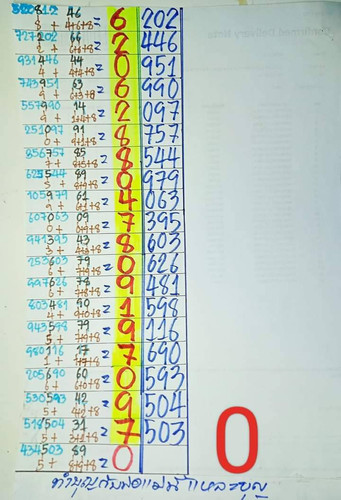 820812 46
8 + 4+6+8 = 6 202
727202 66
2 + 6+6+8 = 2 446
931446 44
4 + 4+4+8 = 0 951
743951 63
9 + 6+3+8 = 6 990
557990 14
9 + 1+4+8 = 2 097
251097 91
0 + 9+1+8 = 8 757
356757 85
7 + 8+5+8 = 8 544
625544 89
5 + 8+9+8 = 0 979
105979 61
9 + 6+1+8 = 4 063
607063 09
0 + 0+9+8 = 7 395
941395 43
3 + 4+3+8 = 8 603
253603 79
6 + 7+9+8 = 0 626
997626 78
6 + 7+8+8 = 9 481
803481 90
4 + 9+0+8 = 1 598
943598 79
5 + 7+9+8 = 9 116
980116 17
1 + 1+7+8 = 7 690
205690 60
6 + 6+0+8 = 0 593
530593 42
5 + 4+2+8 = 9 504
518504 31
5 + 3+1+8 = 7 503
434503 89
5 + 8+9+8 = 0
0
ทำบุญกับพ่อแม่